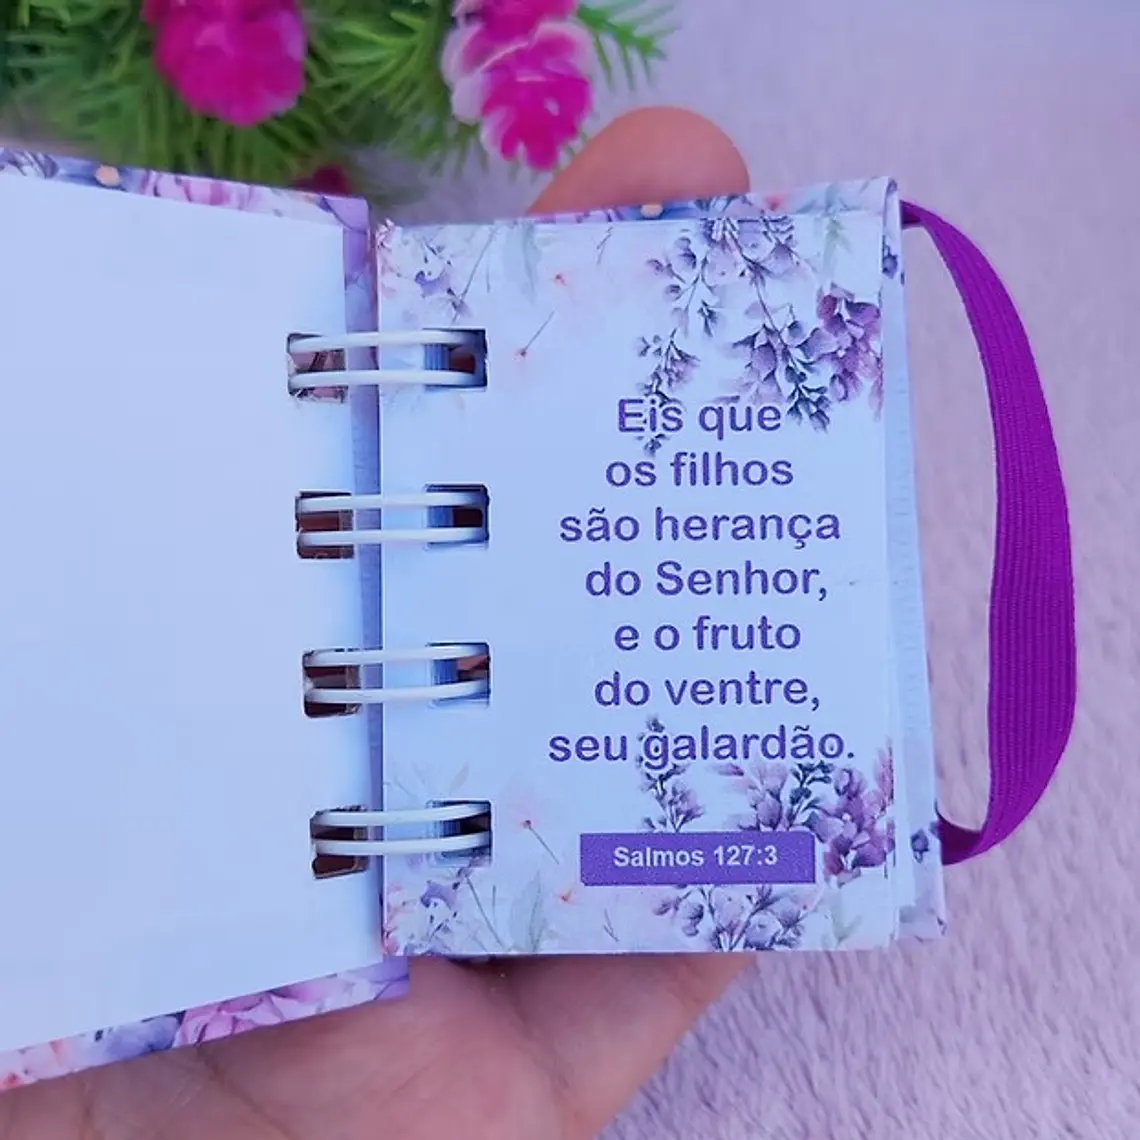 Eis que
os filhos
são herança
do Senhor,
e o fruto
do ventre,
seu galardão.
Salmos 127:3